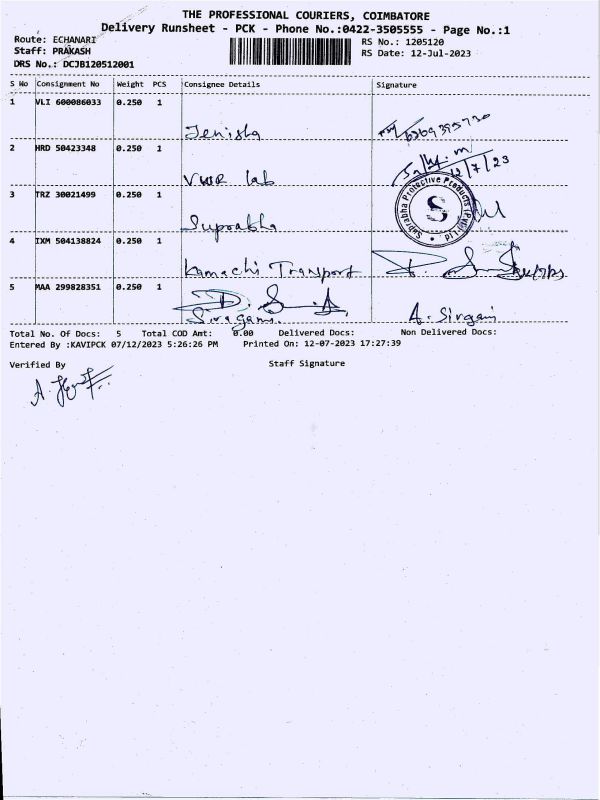 THE PROFESSIONAL COURIERS, COIMBATORE
Delivery Runsheet - PCK - Phone No.:0422-3505555 - Page No.:1
Route: ECHANARI
RS No.: 1205120
Staff: PRAKASH
RS Date: 12-Jul-2023
DRS No.: DCJB120512001
S No Consignment No Weight PCS Consignee Details Signature
1 VLI 600086033 0.250 1
Jenisha
2 HRD 50423348 0.250 1
VWR lab 12/7/23
3 TRZ 30021499 0.250 1
Suprabha
Suprabha Protective Products (P) Ltd
S
4 IXM 504138824 0.250 1
Kamachi Transport
5 MAA 299828351 0.250 1
A. Sirgani
Total No. Of Docs: 5 Total COD Amt: 0.00 Delivered Docs: Non Delivered Docs:
Entered By :KAVIPCK 07/12/2023 5:26:26 PM Printed On: 12-07-2023 17:27:39
Verified By Staff Signature